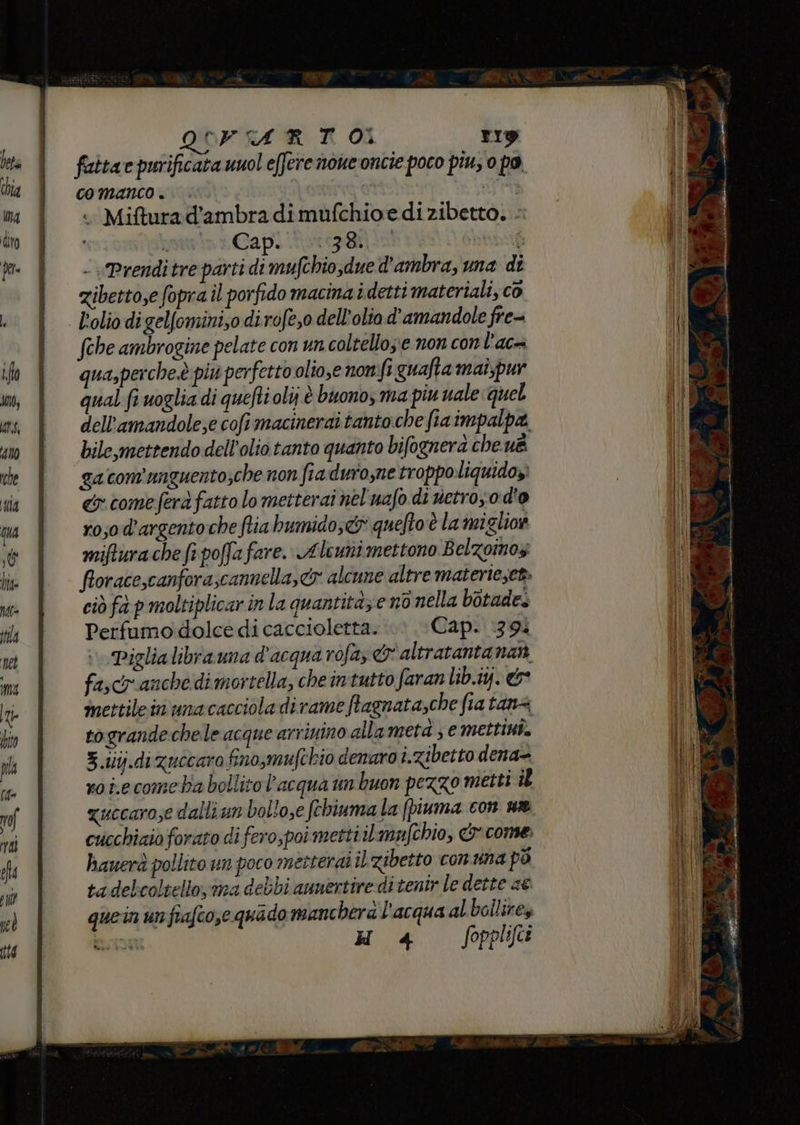 QVARTO. 119
fatta e purificata uuol eſſere noue oncie poco piu, o po
co manco.
Miſtura d'ambra di muſchio e di zibetto.
Cap. 38.
Prendi tre parti di muſchio, due d'ambra, una di
zibetto, e ſopra il porfido macina i detti materiali, cō
l'olio di gelſomini, o di roſe, o dell'olio d'amandole fre-
ſche ambrogine pelate con un coltello, e non con l'ac-
qua, perche è piu perfetto olio, e non ſi guaſta mai, pur
qual ſi uoglia di queſti olij è buono, ma piu uale quel
dell'amandole, e coſi macinerai tanto che ſia impalpa
bile, mettendo dell'olio tanto quanto biſognerà che uē
ga com'unguento, che non ſia duro, ne troppo liquido,
& come ſerà fatto lo metterai nel uaſo di uetro, o d'o
ro, o d'argento che ſtia humido, & queſto è la miglior
miſtura che ſi poſſa fare. Alcuni mettono Belzoino,
ſtorace, canfora, cannella, & alcune altre materie, et
ciò fà p moltiplicar in la quantità, e nō nella bōtade.
Perfumo dolce di caccioletta. Cap. 39.
Piglia libra una d'acqua roſa, & altratanta nan
fa, & anche di mortella, che in tutto ſaran lib. iij. &
mettile in una cacciola di rame ſtagnata, che ſia tan-
to grande che le acque arriuino alla metà, e mettiui.
Ʒ. iiij. di zuccaro fino, muſchio denaro i. zibetto dena-
ro i. e come ha bollito l'acqua un buon pezzo metti il
zuccaro, e dalli un bollo, e ſchiuma la ſpiuma con un
cucchiaio forato di fero, poi metti il muſchio, & come
hauerà pollito un poco metterai il zibetto con una pō
ta del coltello, ma debbi auuertire di tenir le dette ac
que in un fiaſco, e quādo mancherà l'acqua al bollire,
H 4 ſopplifci